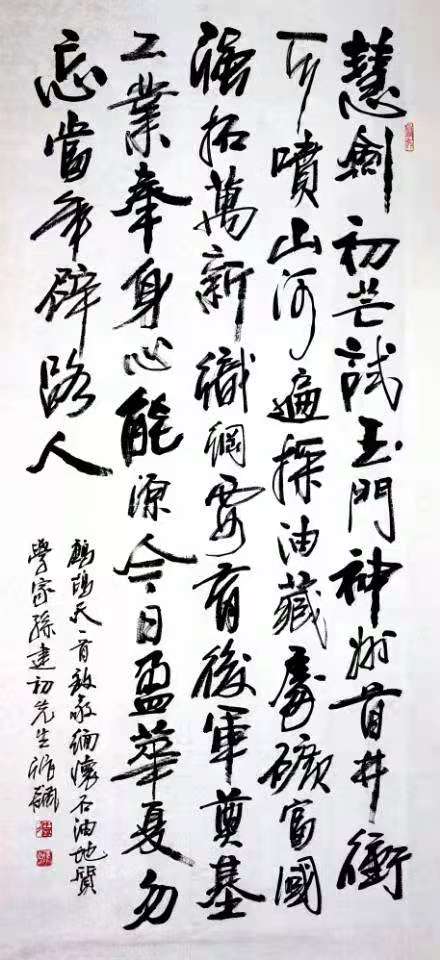 慧劍初芒試玉門神州首井衝
噴山河遍探油藏處礦富國
強拓萬新織綱要育後軍奠基
工業奉身心能源今日盈華夏勿
忘當年辟路人
鷓鴣天一首致敬緬懷石油地質
學家孫建初先生